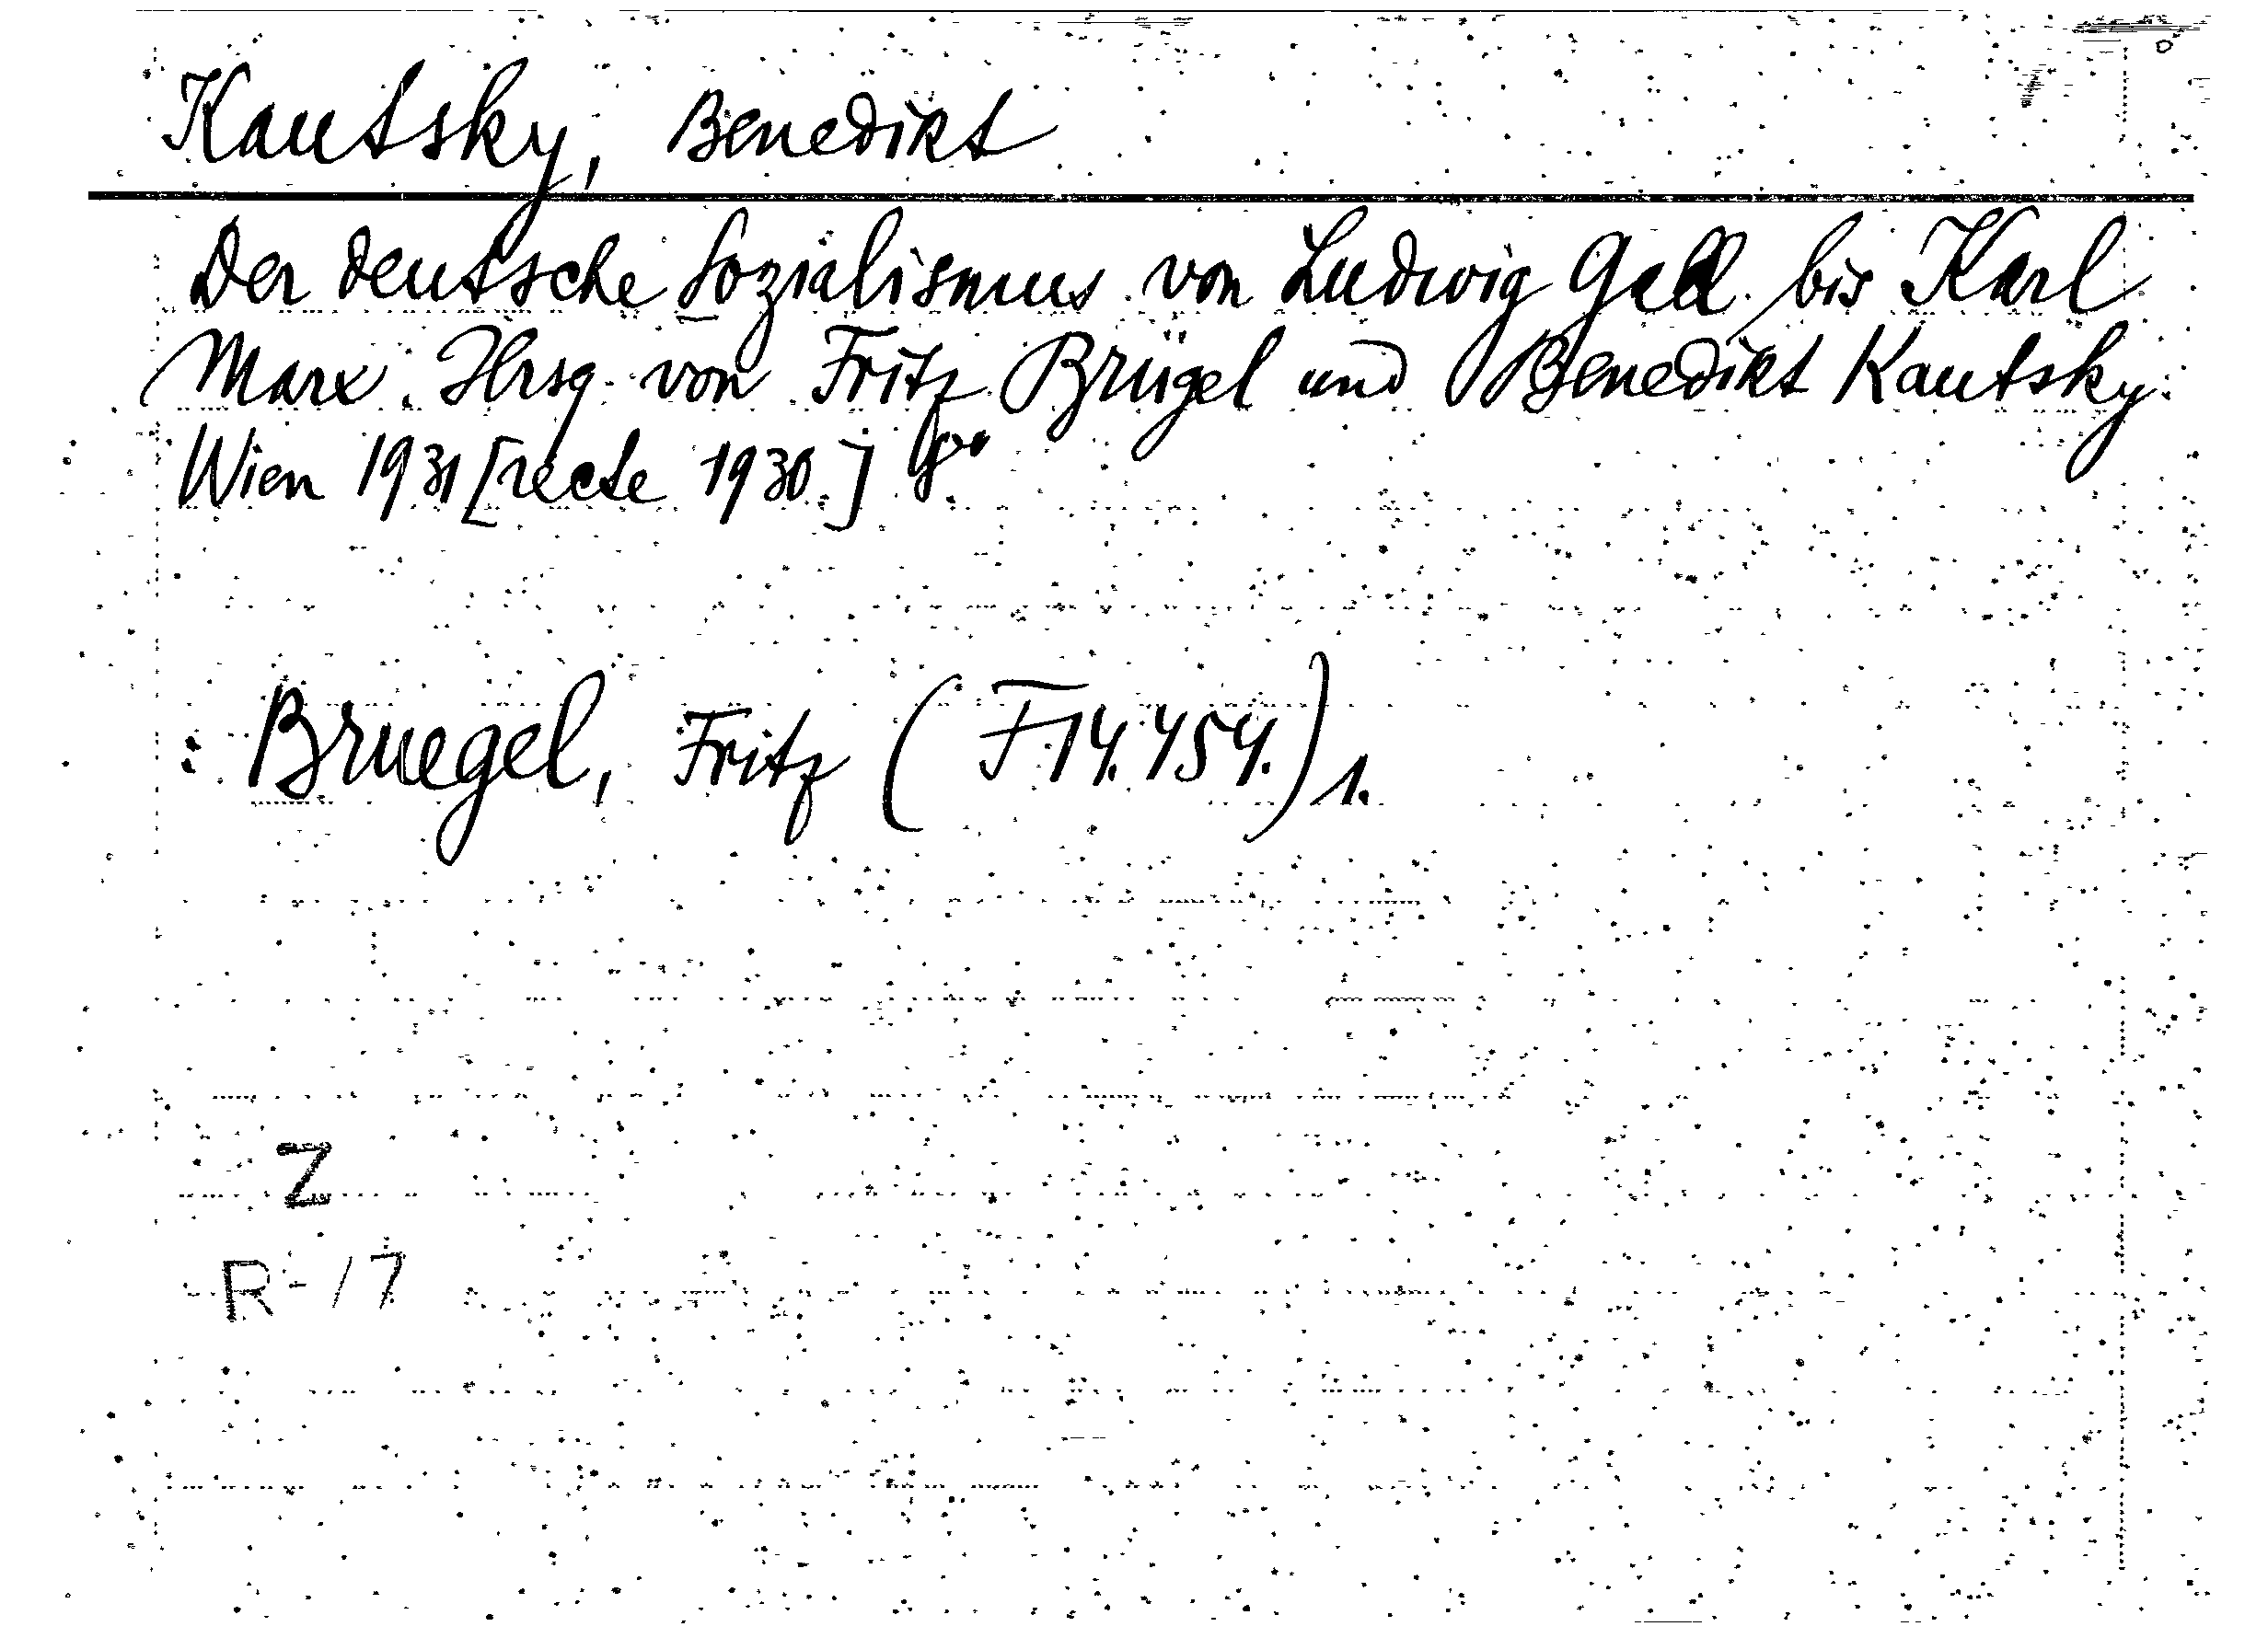 Kautsky, Benedikt
Der deutsche Sozialismus von Ludwig Gall bis Karl
Marx. Hrsg. von Fritz Brügel und Benedikt Kautsky.
Wien 1931 [recte 1930.] 8°.
: Bruegel, Fritz (F 14.454.) 1.
Z
R-17